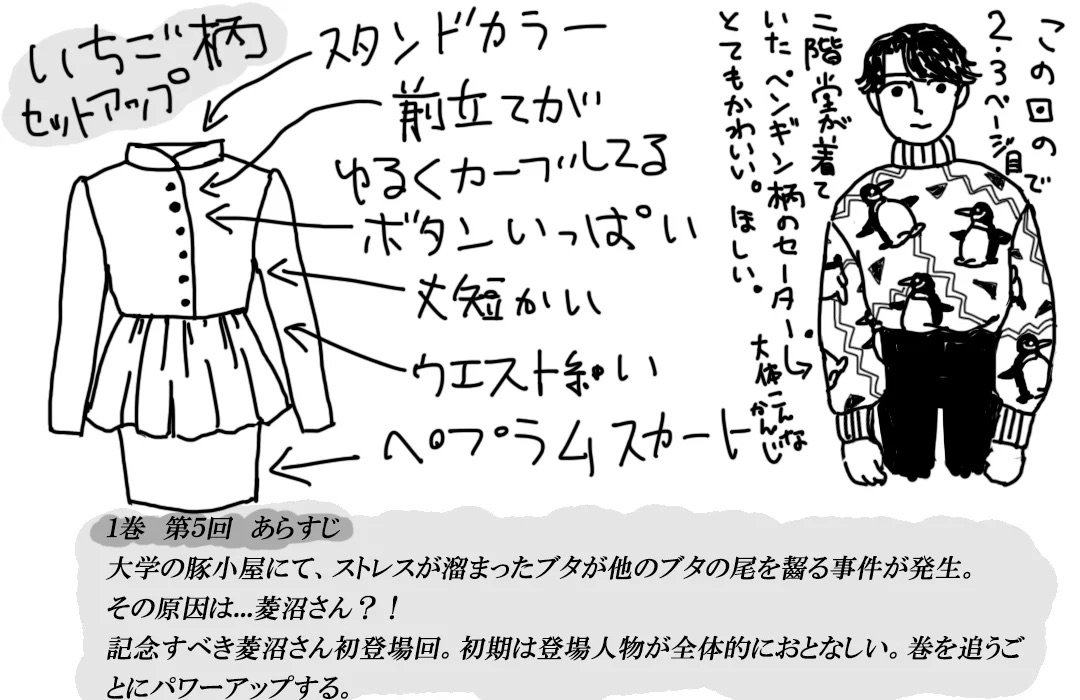 いちご柄
セットアップ
スタンドカラー
前立てが
ゆるくカーブしてる
ボタンいっぱい
丈短かい
ウエスト細い
ペプラムスカート
この回の
2・3ページ目で
二階堂が着て
いたペンギン柄のセーター。
とてもかわいい。ほしい。
大体こんな
かんじ
1巻 第5回 あらすじ
大学の豚小屋にて、ストレスが溜まったブタが他のブタの尾を齧る事件が発生。
その原因は...菱沼さん？！
記念すべき菱沼さん初登場回。初期は登場人物が全体的におとなしい。巻を追うご
とにパワーアップする。